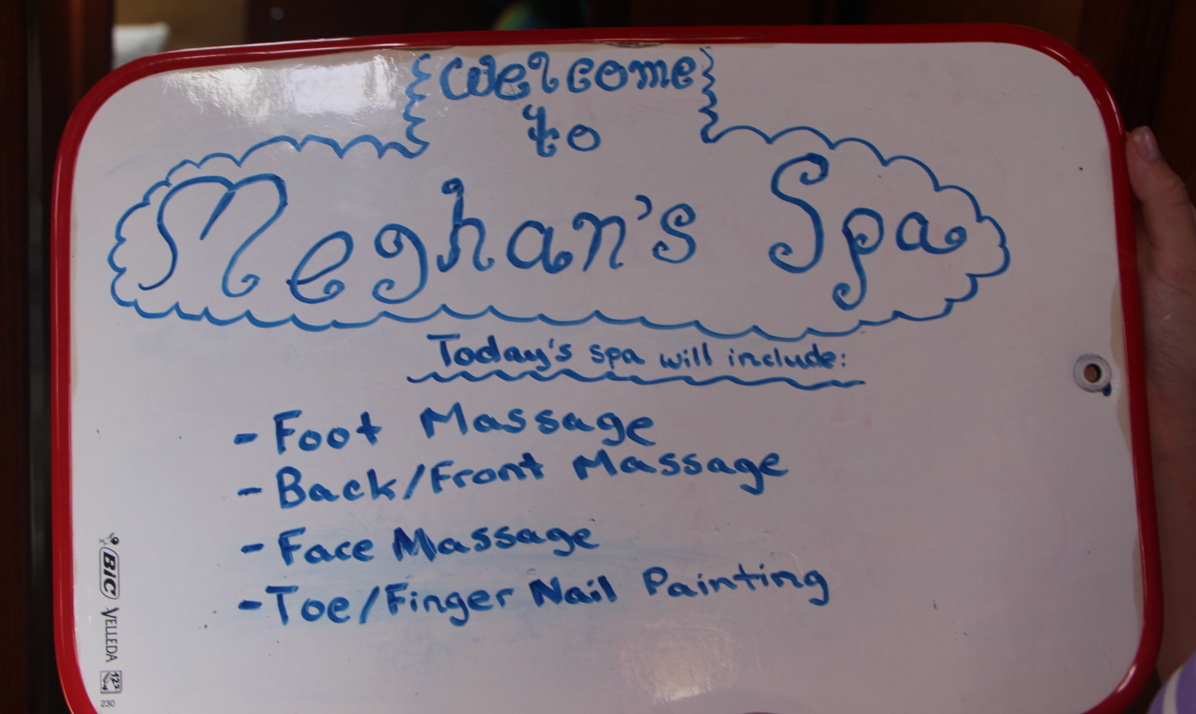 Welcome
to
Meghan's Spa
Today's spa will include:
- Foot Massage
- Back/Front Massage
- Face Massage
- Toe/Finger Nail Painting
BIC VELLEDA
230